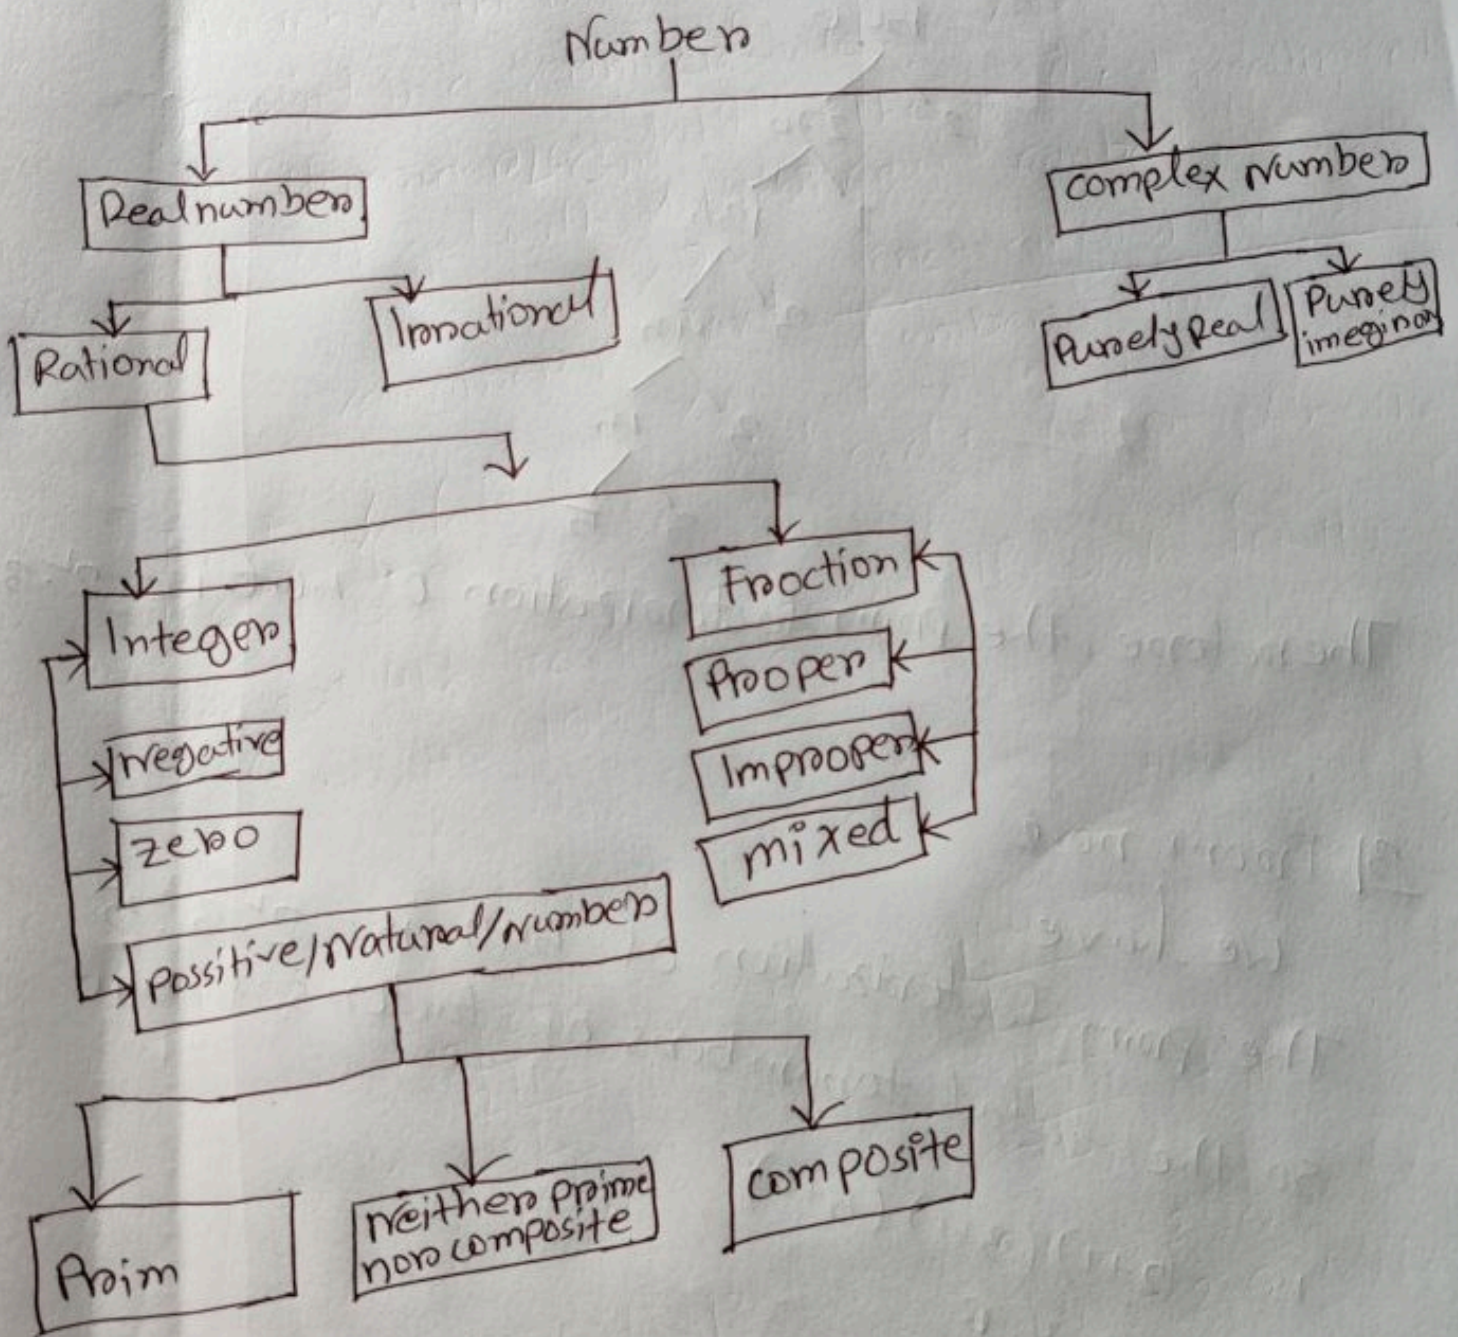 Number
Real number
complex Number
Rational
Irrational
Purely Real
Purely
imeginary
Integer
Fraction
Negative
Proper
zero
Improper
mixed
possitive/Natural/Number
Prim
Neither prime
nor composite
composite